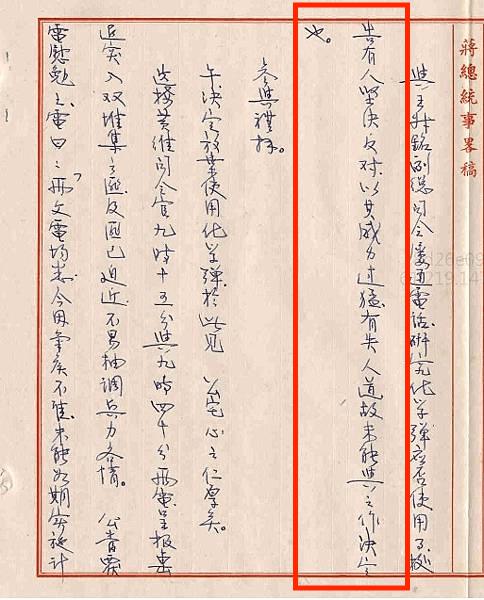 蔣總統事畧稿
與王叔銘副總司令屢通電話研究化学彈應否使用
告有人堅決反对以其威力過猛有失人道故未能與之作決定
也。
参與禮拜。
午決定放棄使用化学彈於此見 公宅心之仁厚矣。
迭接黄维司令官九時十五分與九時四十分兩電呈报
突入双堆集之匪及匪已迫近不易抽調兵力各情。 公當覆
電慰勉之電曰：「兩文電均悉今因氣候不佳未能如期實施計